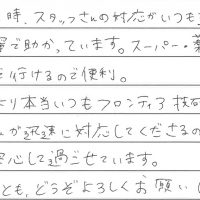 時、スタッフさんの対応がいつも
で助かっています。スーパー・薬
行けるので便利。
り本当いつもフロンティア技研
が迅速に対応してくださるの
心して過ごせています。
とも、どうぞよろしくお願いし